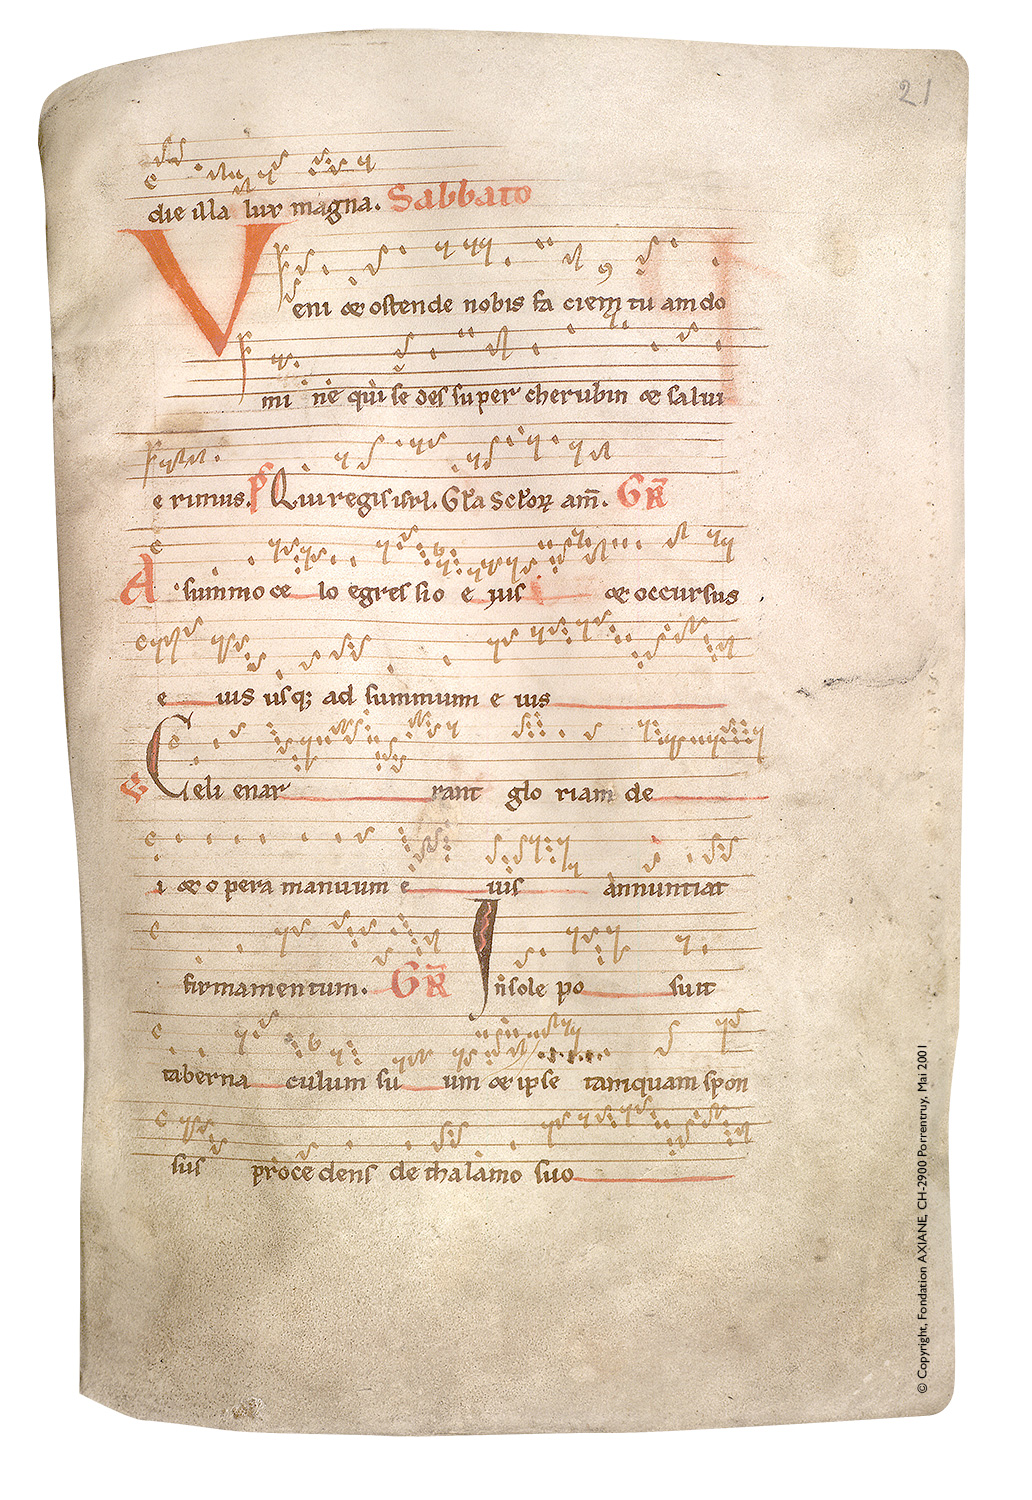 21
die illa lux magna. Sabbato
Veni & ostende nobis fa ciem tu am do
mi ne qui se des super cherubin & salui
e rimus. Ps Qui regis isrl. Gr̄a Sc̄lor̄ am̄. GR̄
A summo ce lo egres sio e ius & occursus
e ius usq; ad summum e ius
V Celi enar rant glo riam de
i & o pera manuum e ius annuntiat
firmamentum. GR̄ In sole po suit
taberna culum su um & ipse tamquam spon
sus procedens de thalamo suo
© Copyright, Fondation AXIANE, CH-2900 Porrentruy, Mai 2001